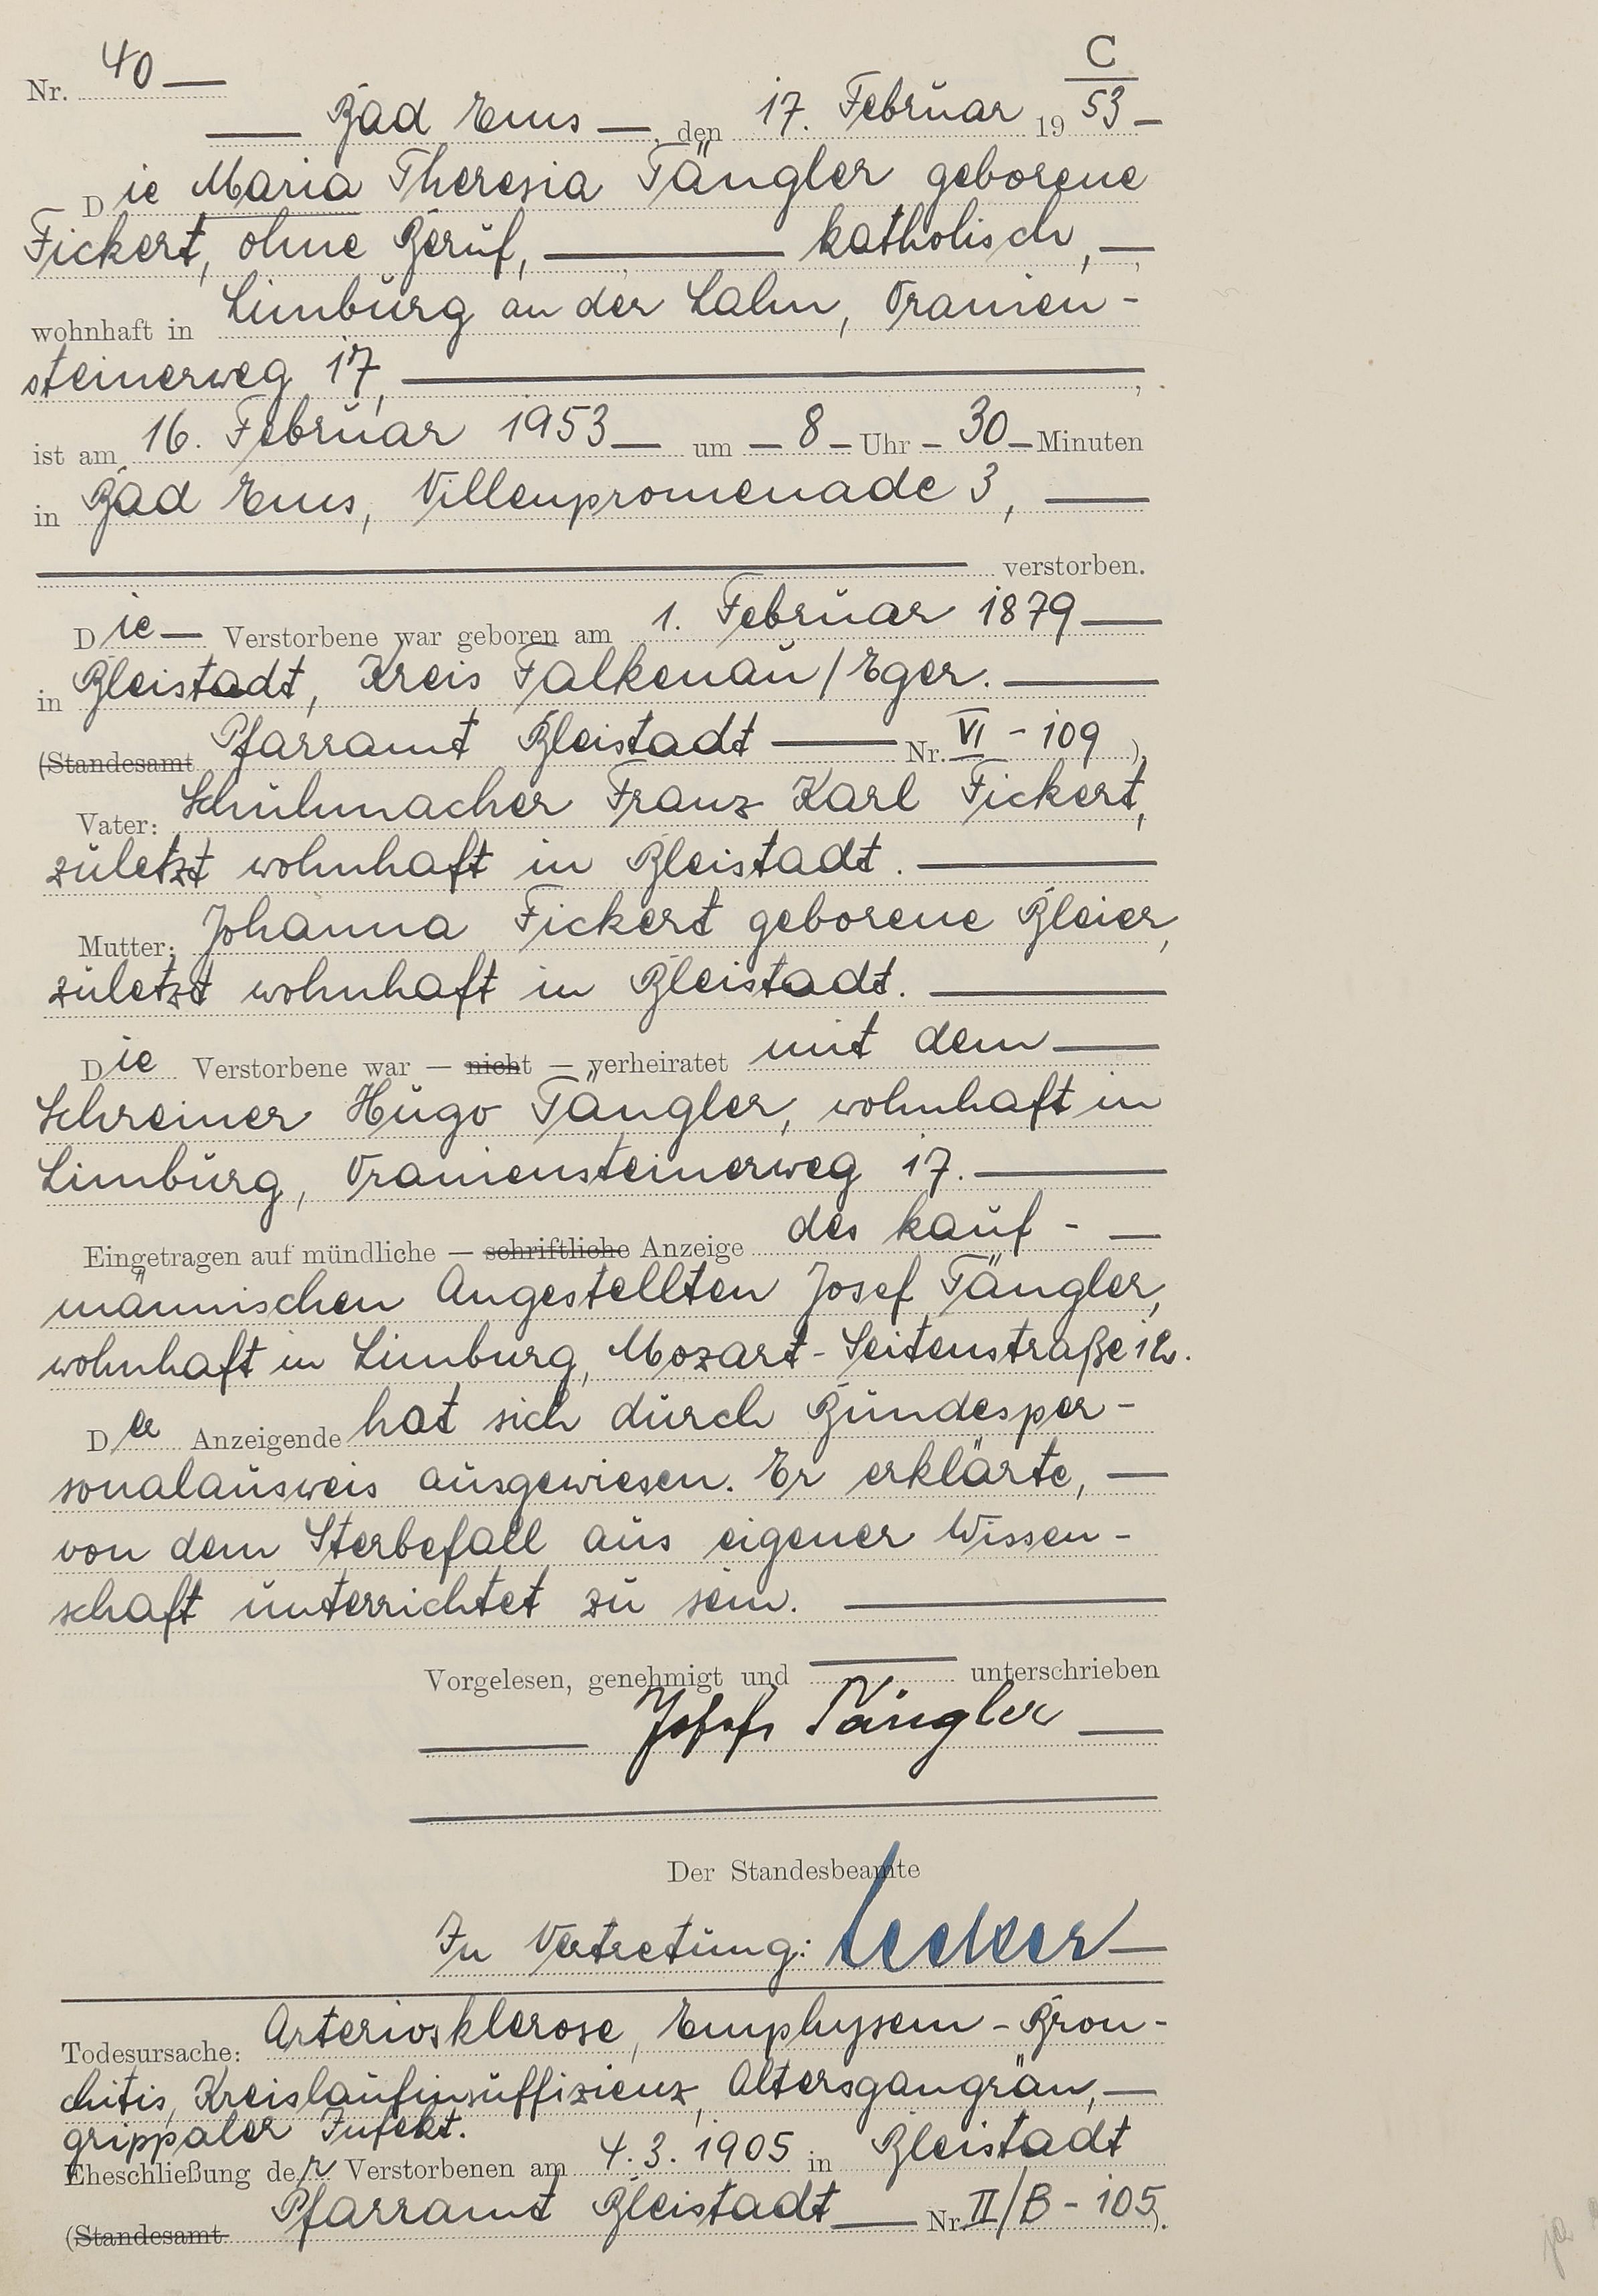 C
Nr. 40 —
— Bad Ems —, den 17. Februar 1953 —
Die Maria Theresia Tängler geborene
Fickert, ohne Beruf, — katholisch, —
wohnhaft in Limburg an der Lahn, Oranien-
steinerweg 17, —
ist am 16. Februar 1953 — um — 8 — Uhr — 30 — Minuten
in Bad Ems, Villenpromenade 3, —
— verstorben.
Die — Verstorbene war geboren am 1. Februar 1879 —
in Bleistadt, Kreis Falkenau/Eger. —
(Standesamt Pfarramt Bleistadt — Nr. VI - 109 ),
Vater: Schuhmacher Franz Karl Fickert,
zuletzt wohnhaft in Bleistadt. —
Mutter: Johanna Fickert geborene Bleier,
zuletzt wohnhaft in Bleistadt. —
Die Verstorbene war — nicht — verheiratet mit dem —
Schreiner Hugo Tängler, wohnhaft in
Limburg, Oraniensteinerweg 17. —
Eingetragen auf mündliche — schriftliche Anzeige des kauf- —
männischen Angestellten Josef Tängler,
wohnhaft in Limburg, Mozart-Seitenstraße
Der Anzeigende hat sich durch Bundesper-
sonalausweis ausgewiesen. Er erklärte, —
von dem Sterbefall aus eigener Wissen-
schaft unterrichtet zu sein. —
Vorgelesen, genehmigt und — unterschrieben
— Josef Tängler —
Der Standesbeamte
In Vertretung:
Todesursache: Arteriosklerose, Emphysem-Bron-
chitis, Kreislaufinsuffizienz, Altersgangrän, —
grippaler Infekt.
Eheschließung der Verstorbenen am 4.3.1905 in Bleistadt
(Standesamt Pfarramt Bleistadt — Nr. II/B - 105 ).